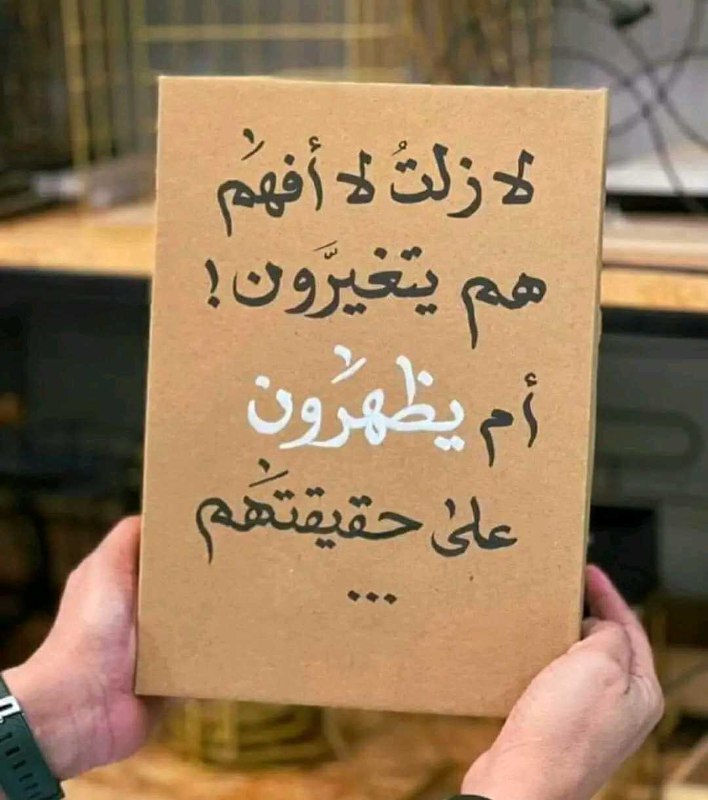 لا زلتُ لا أفهم
هم يتغيّرون !
أم يظهرون
على حقيقتهم
...